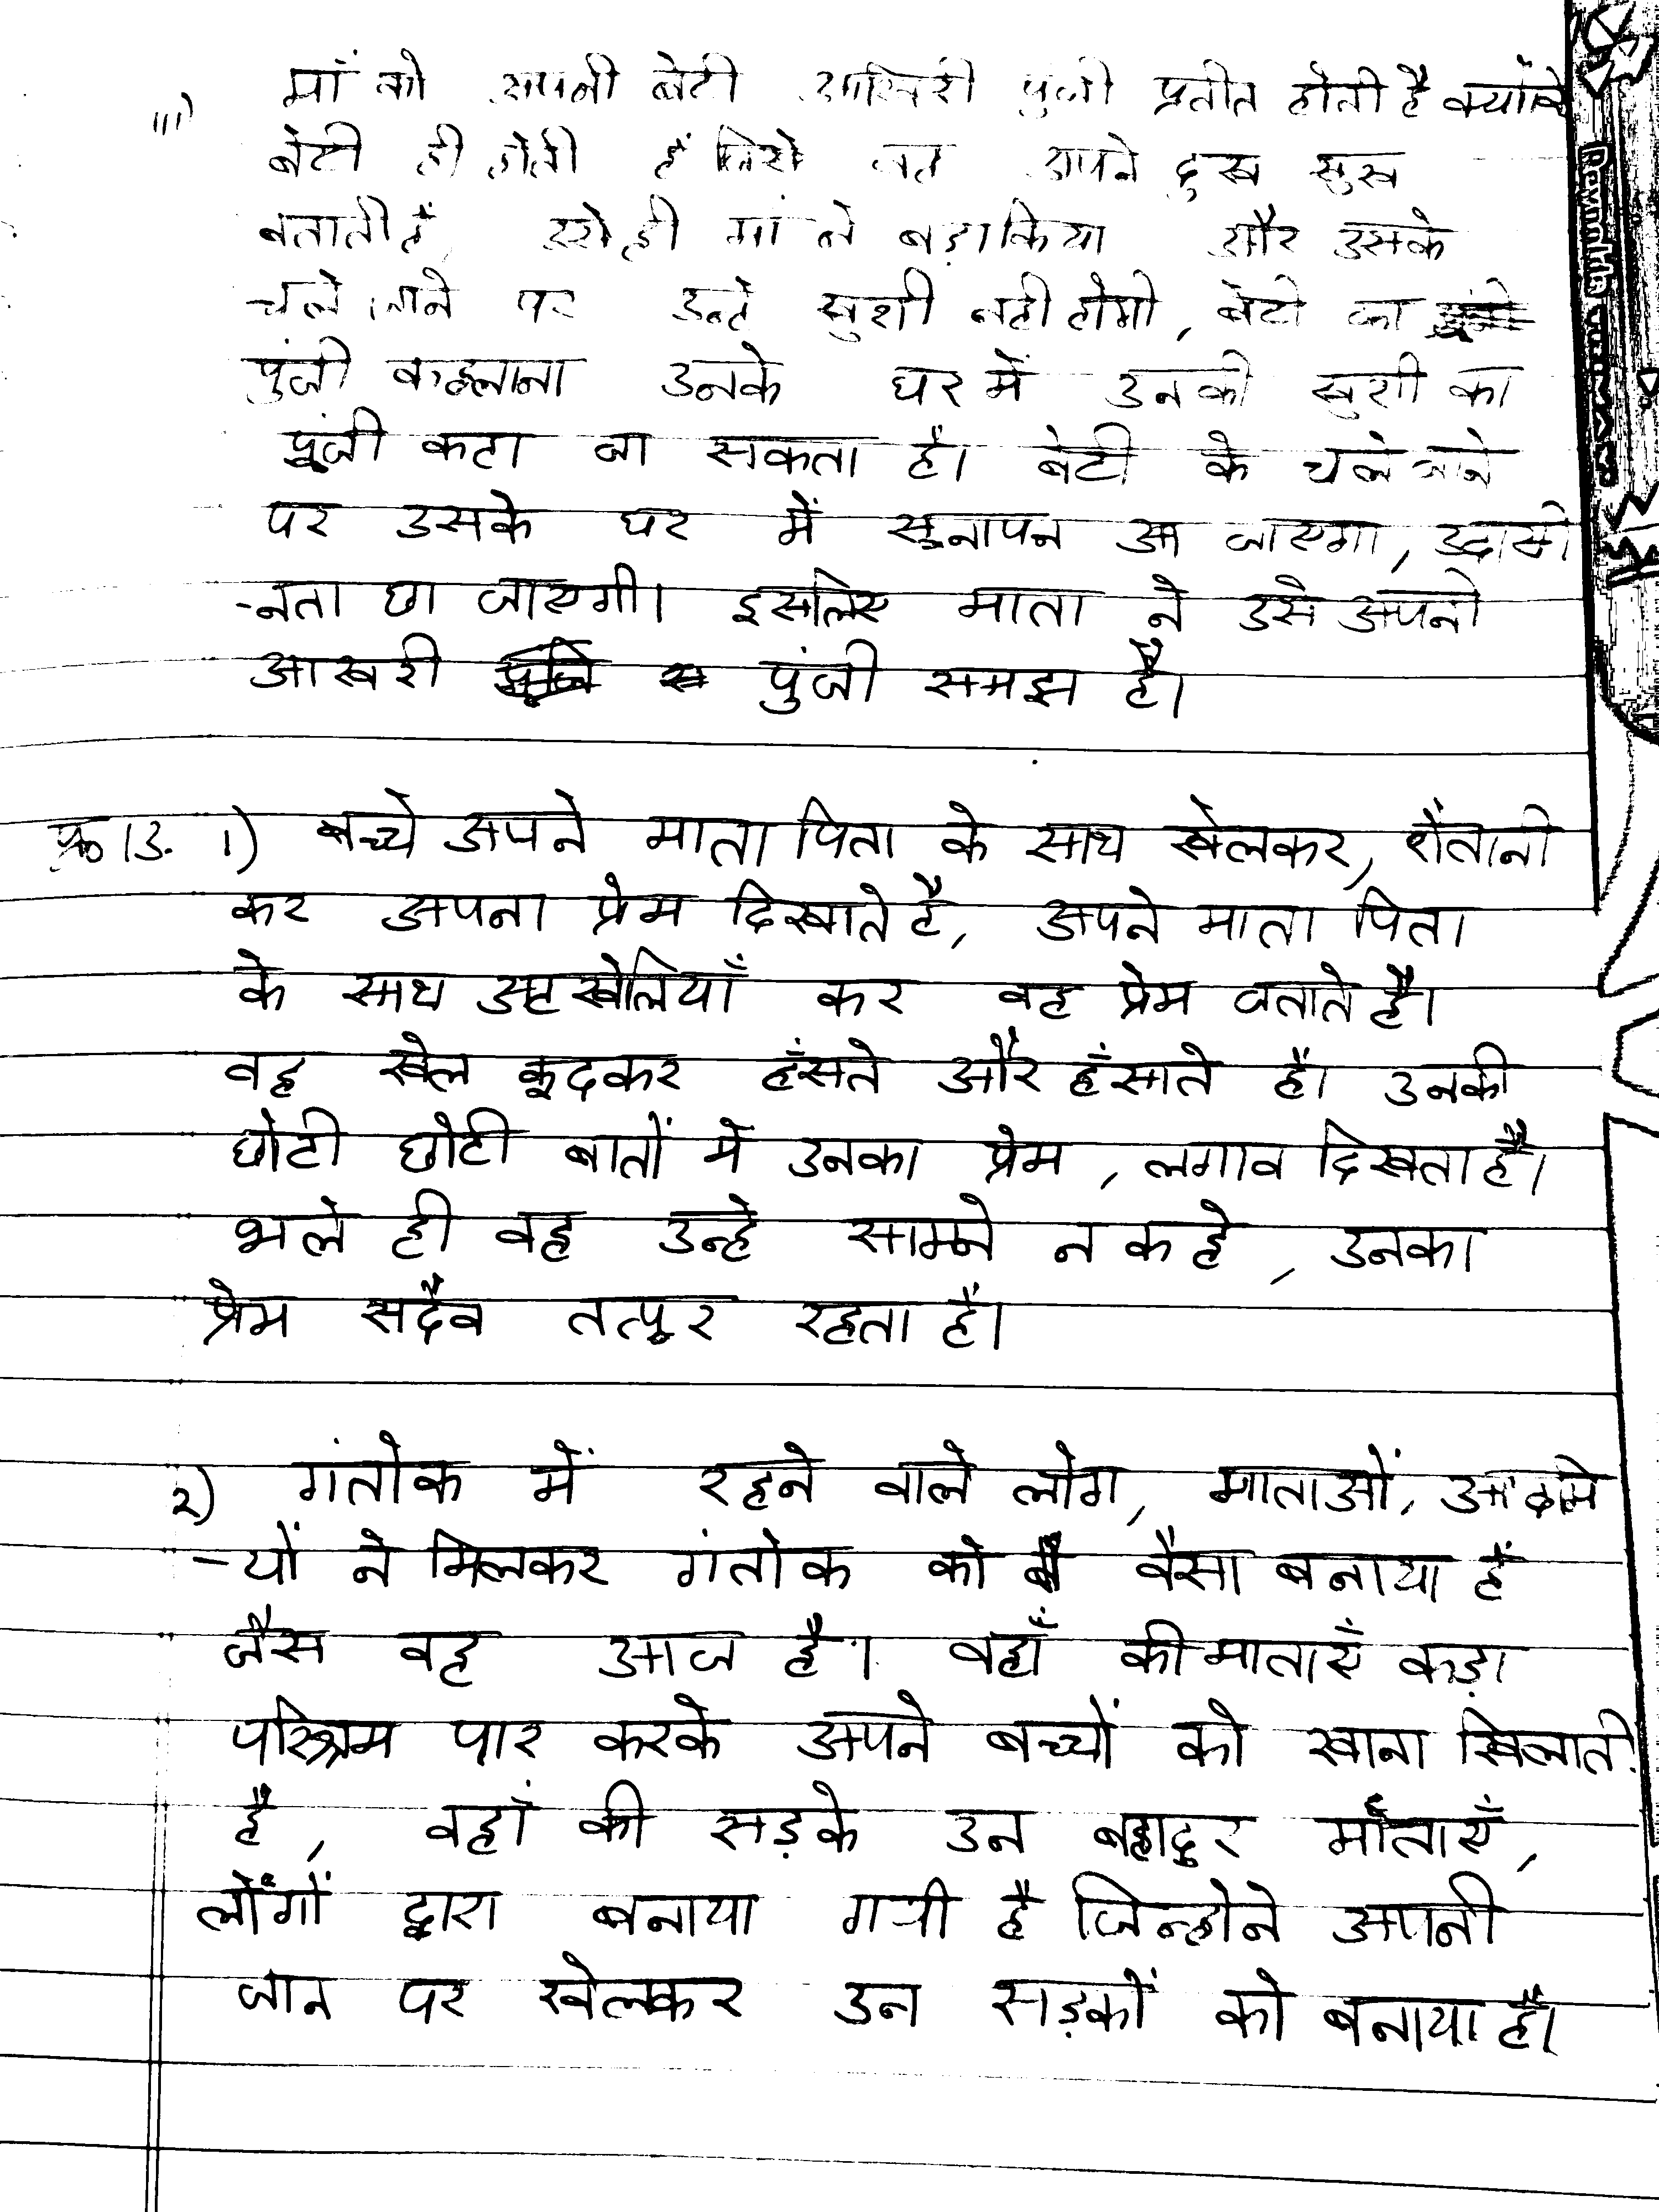 iii) मां को अपनी बेटी आखिरी पुंजी प्रतीत होती है क्योंकि
बेटी ही होती है जिसे वह अपने दुख सुख
बताती है, उसे ही मां ने बड़ा किया और उसके
चले जाने पर उन्हे खुशी नही होगी, बेटी का
पुंजी कहलाना उनके घर में उनकी खुशी का
पूंजी कहा जा सकता है। बेटी के चले जाने
पर उसके घर में सूनापन आ जाएगा, उदासी
-नता छा जाएगी। इसलिए माता ने उसे अपनी
आखरी पुंजी समझ है।
प्र०13. 1) बच्चे अपने माता पिता के साथ खेलकर, शैतानी
कर अपना प्रेम दिखाते है, अपने माता पिता
के साथ अटखेलियाँ कर वह प्रेम जताते है।
वह खेल कूदकर हँसते और हँसाते है। उनकी
छोटी छोटी बातों मे उनका प्रेम, लगाव दिखता है।
भले ही वह उन्हे साम्ने न कहे, उनका
प्रेम सदैव तत्पूर रहता है।
2) गंतोक में रहने वाले लोग, माताओं, आदमि
-यों ने मिलकर गंतोक को वैसा बनाया है
जैस वह आज है। वहाँ की माताएँ कड़ा
परिश्रम पार करके अपने बच्चों को खाना खिलाती
है, वहां की सड़के उन बहादुर माताएँ,
लोगों द्वारा बनाया गयी है जिन्होने अपनी
जान पर खेलकर उन सड़कों को बनाया है।